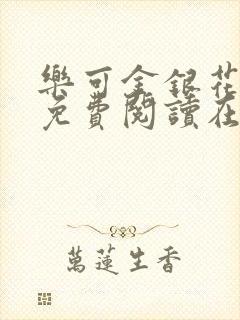 樂可金銀花
免費閱讀在
萬蓮生香